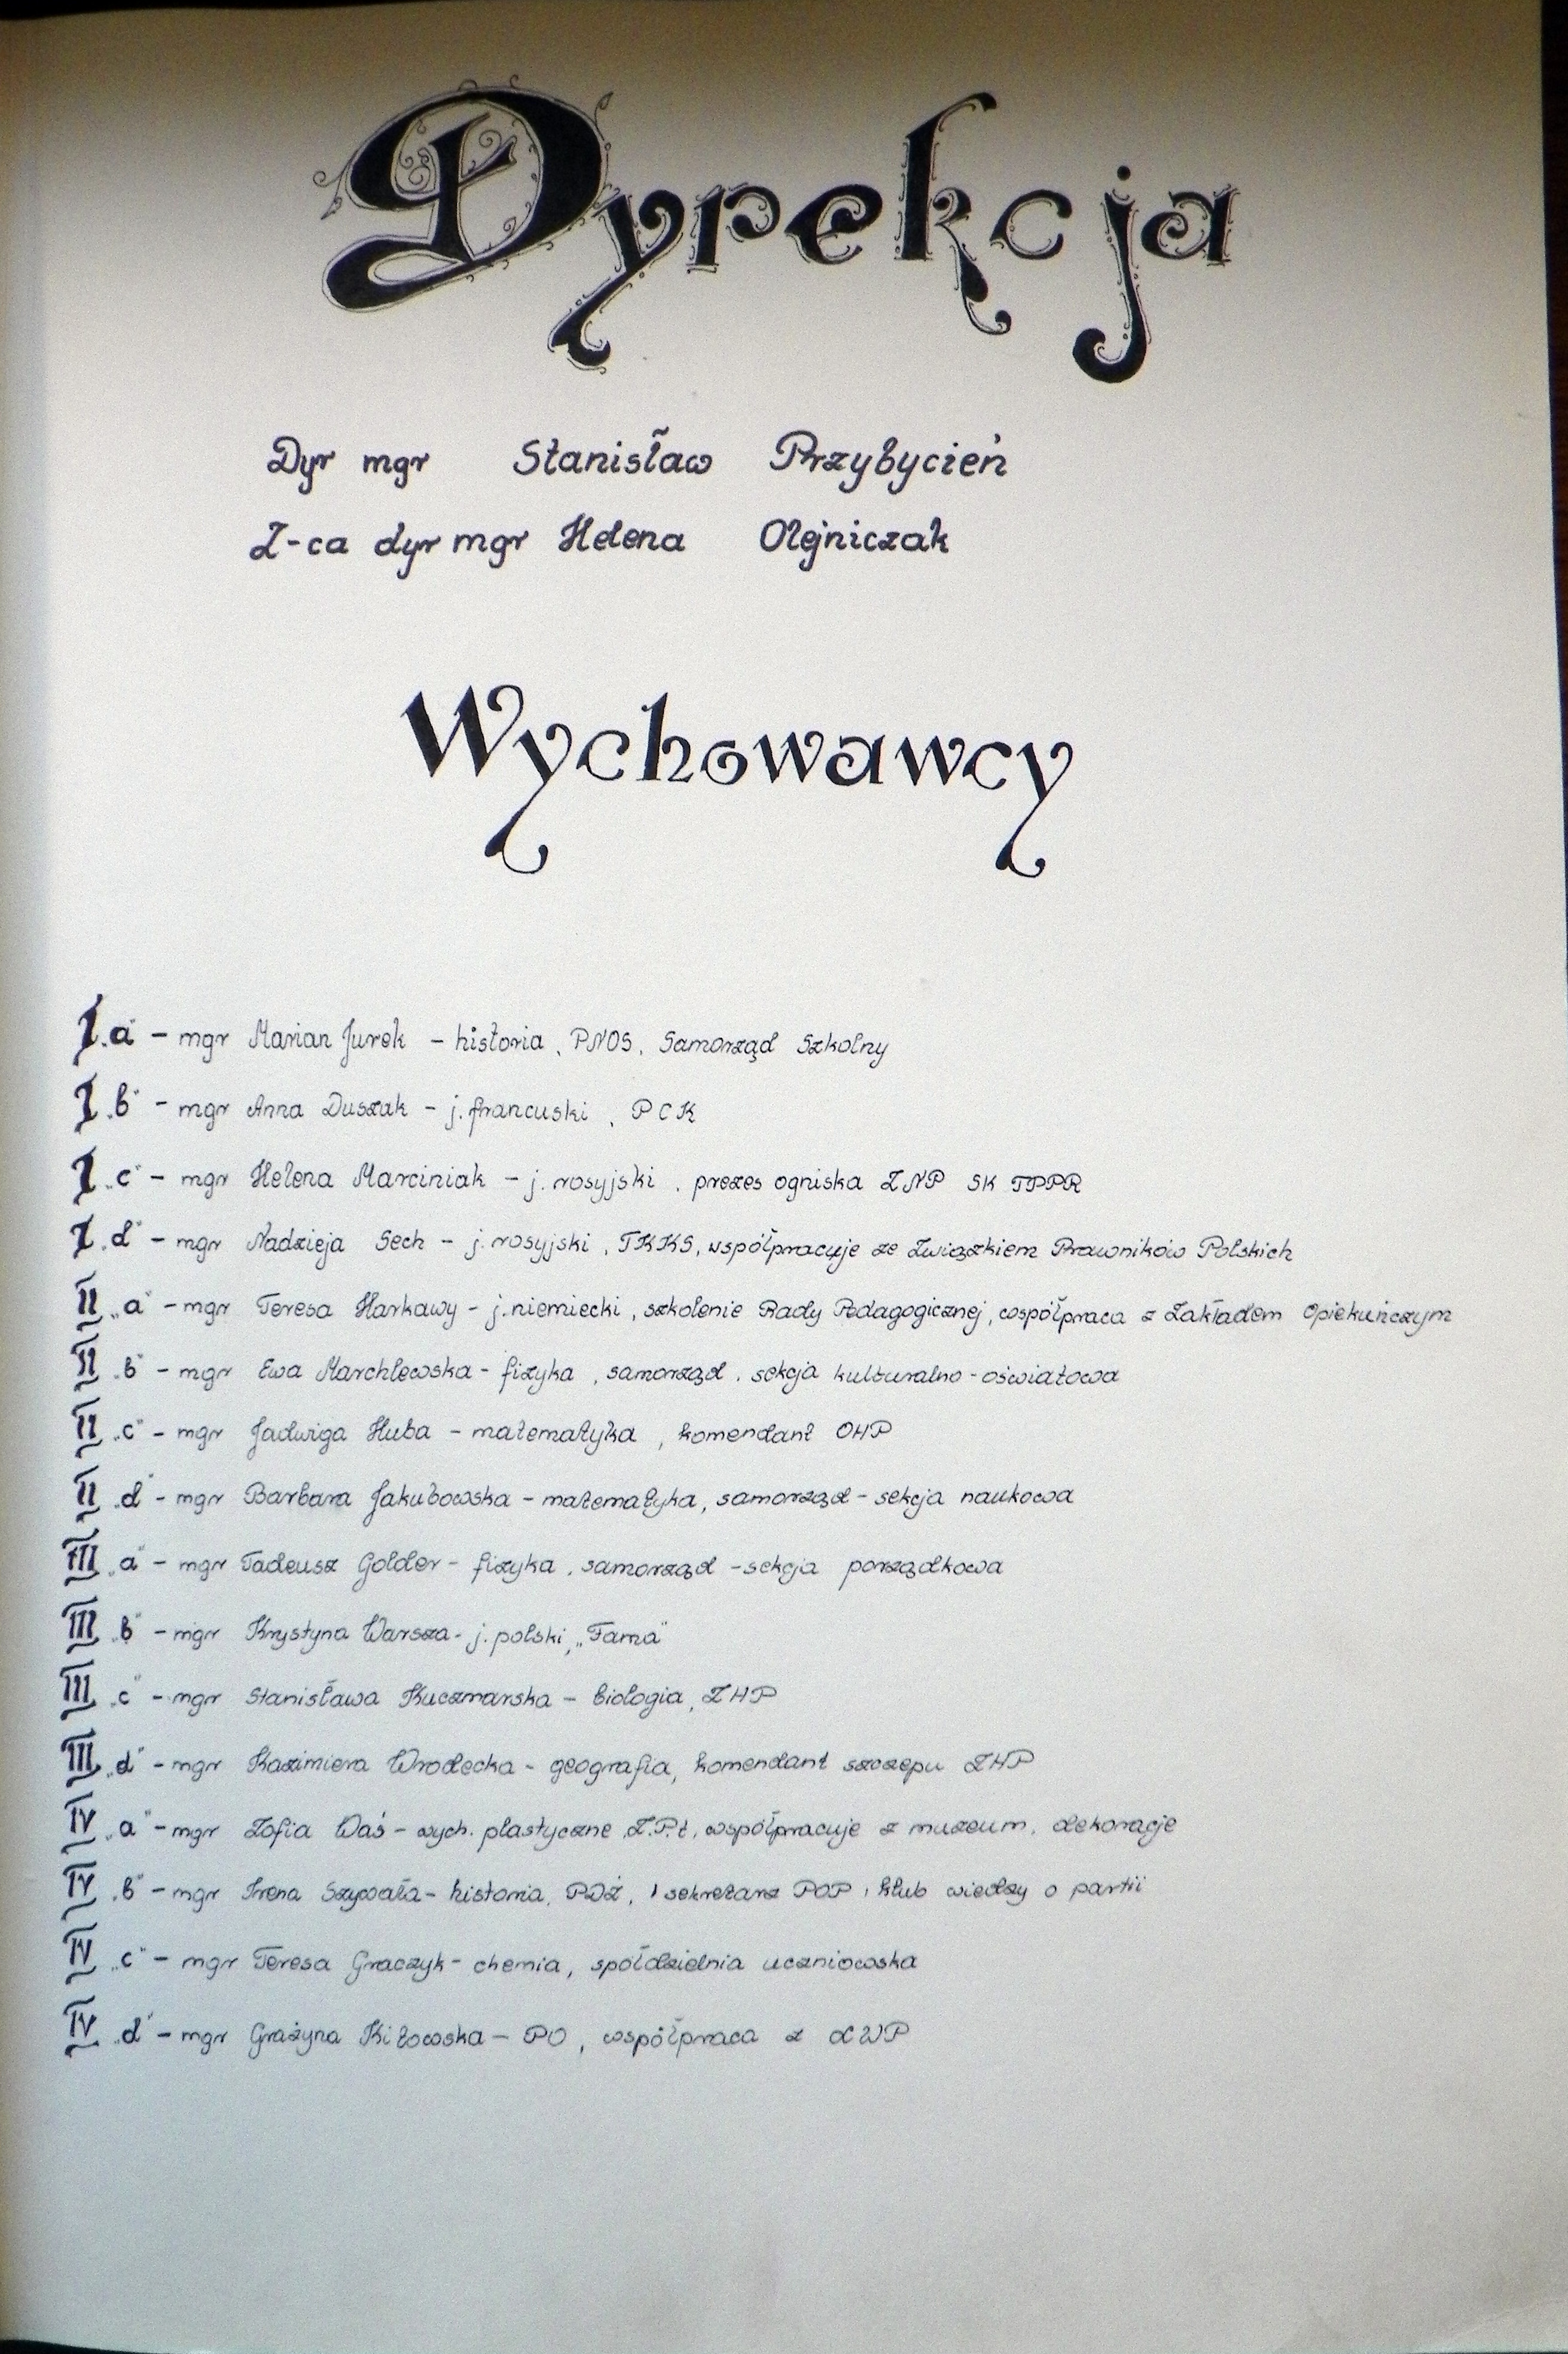 Dyrekcja
Dyr mgr Stanisław Przybycień
Z-ca dyr mgr Helena Olejniczak
Wychowawcy
I „a" - mgr Marian Jurek - historia, PNOS, Samorząd Szkolny
I „b" - mgr Anna Duszak - j. francuski, PCK
I „c" - mgr Helena Marciniak - j. rosyjski, prezes ogniska ZNP SK TPPR
I „d" - mgr Nadzieja Sech - j. rosyjski, TKKS, współpracuje ze Związkiem Prawników Polskich
II „a" - mgr Teresa Harkawy - j. niemiecki, szkolenie Rady Pedagogicznej, współpraca z Zakładem Opiekuńczym
II „b" - mgr Ewa Marchlewska - fizyka, samorząd, sekcja kulturalno-oświatowa
II „c" - mgr Jadwiga Huba - matematyka, komendant OHP
II „d" - mgr Barbara Jakubowska - matematyka, samorząd - sekcja naukowa
III „a" - mgr Tadeusz Golder - fizyka, samorząd - sekcja porządkowa
III „b" - mgr Krystyna Warsza - j. polski, „Fama"
III „c" - mgr Stanisława Kuczmarska - biologia, ZHP
III „d" - mgr Kazimiera Wrodecka - geografia, komendant szczepu ZHP
IV „a" - mgr Zofia Waś - wych. plastyczne, Z.P.t, współpracuje z muzeum, dekoracje
IV „b" - mgr Irena Szywała - historia, PDŻ, I sekretarz POP, klub wiedzy o partii
IV „c" - mgr Teresa Graczyk - chemia, spółdzielnia uczniowska
IV „d" - mgr Grażyna Kitowska - PO, współpraca z LWP